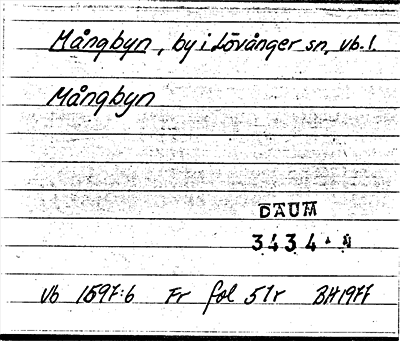 Mångbyn, by i Lövånger sn, vb. l.
Mångbyn
DAUM
3434
Vb 1597:6 Fr fol 51r BH1977